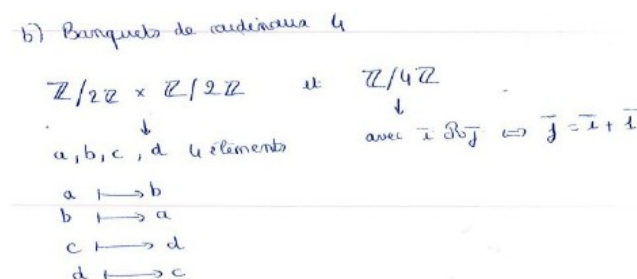 b) Banquets de cardinaux 4
ℤ/2ℤ × ℤ/2ℤ et ℤ/4ℤ
↓ ↓
a, b, c, d 4 éléments avec ī ℛ j̄ ⇔ j̄ = ī + 1̄
a ↦ b
b ↦ a
c ↦ d
d ↦ c